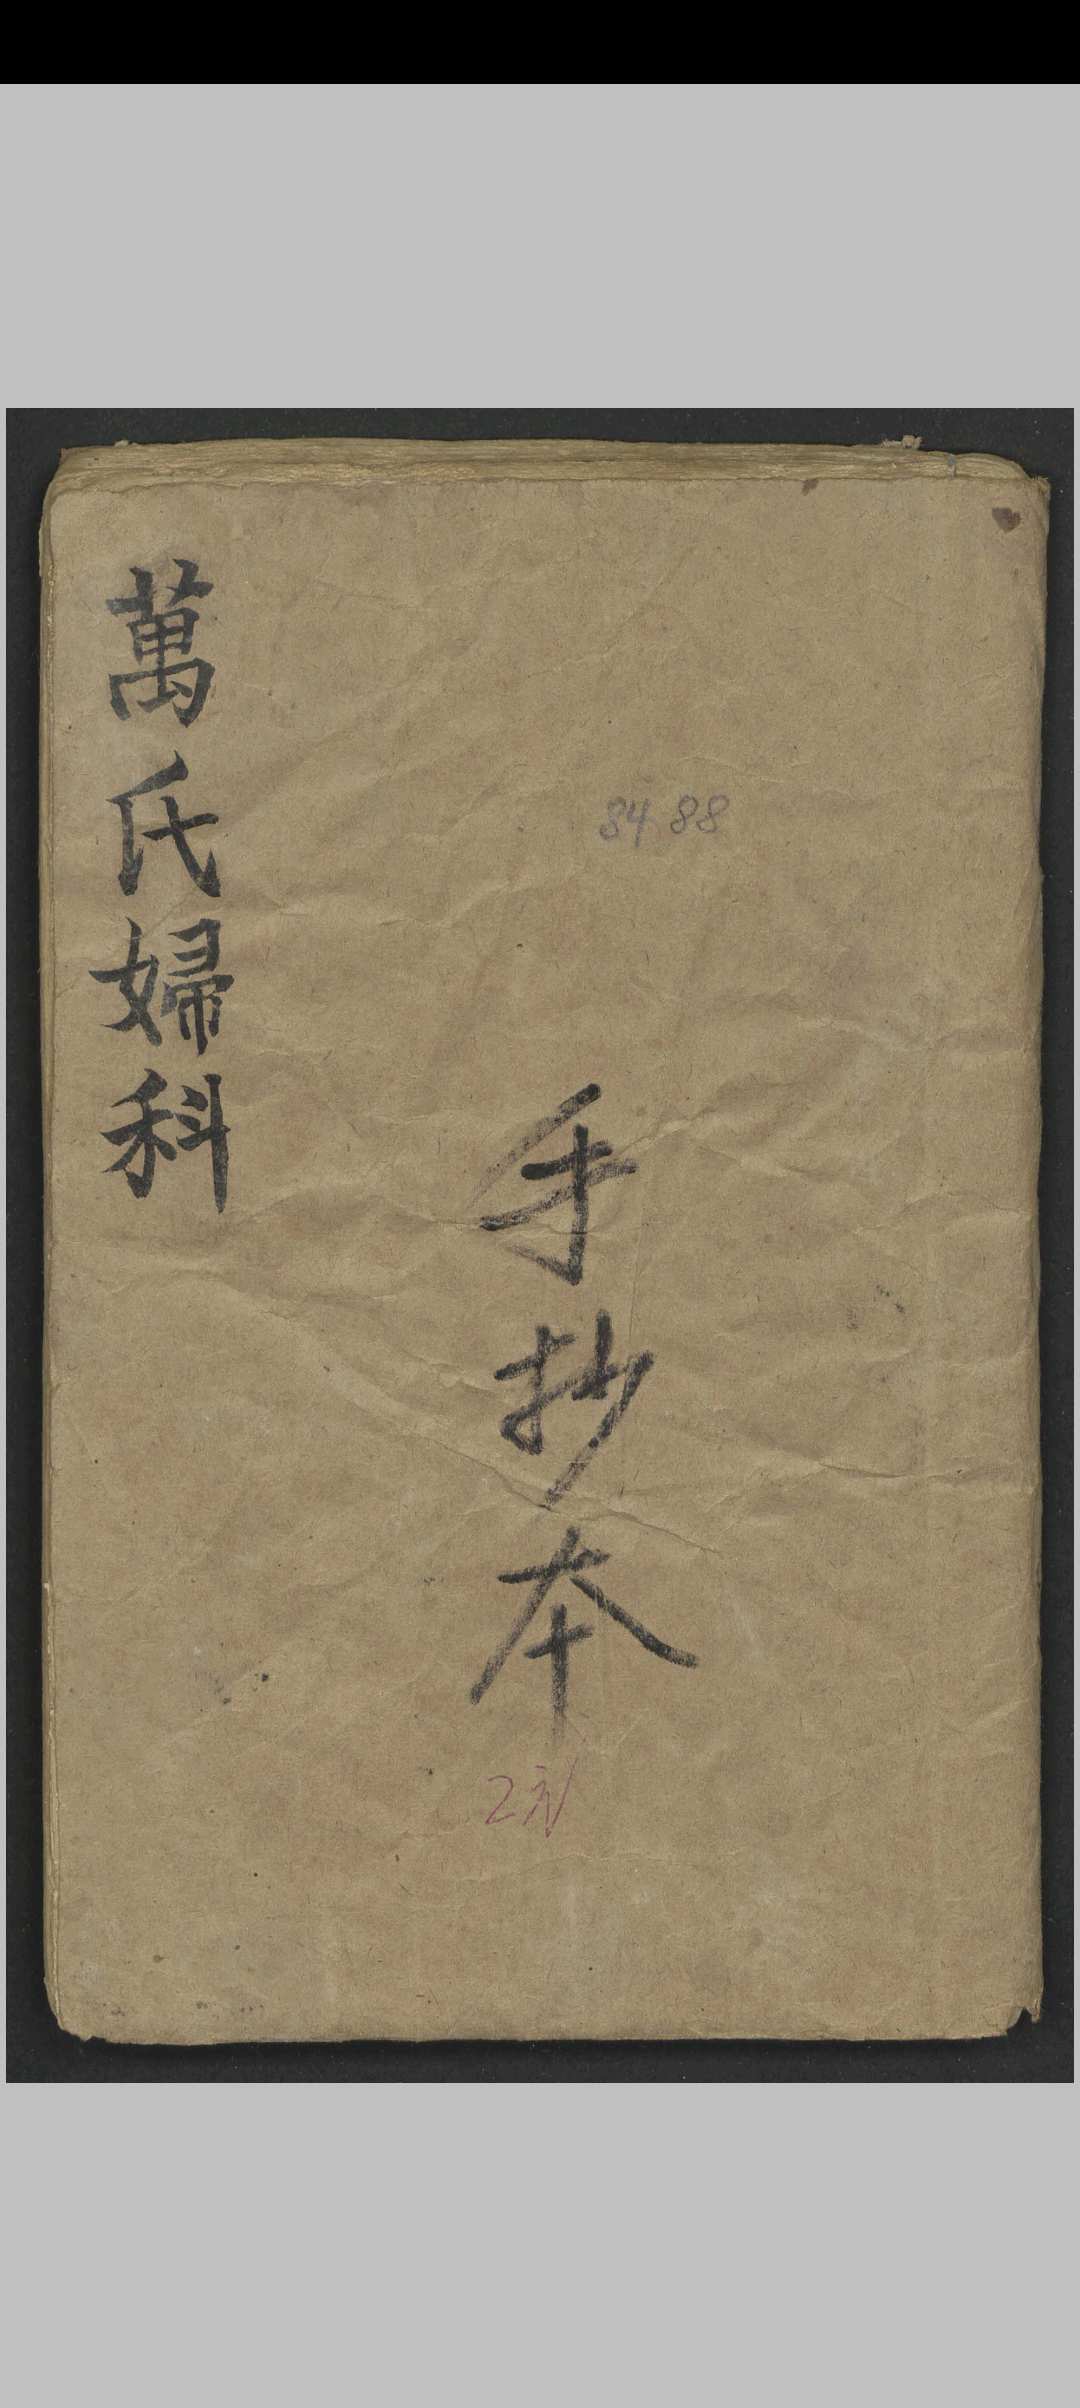 萬氏婦科
8488
手抄本